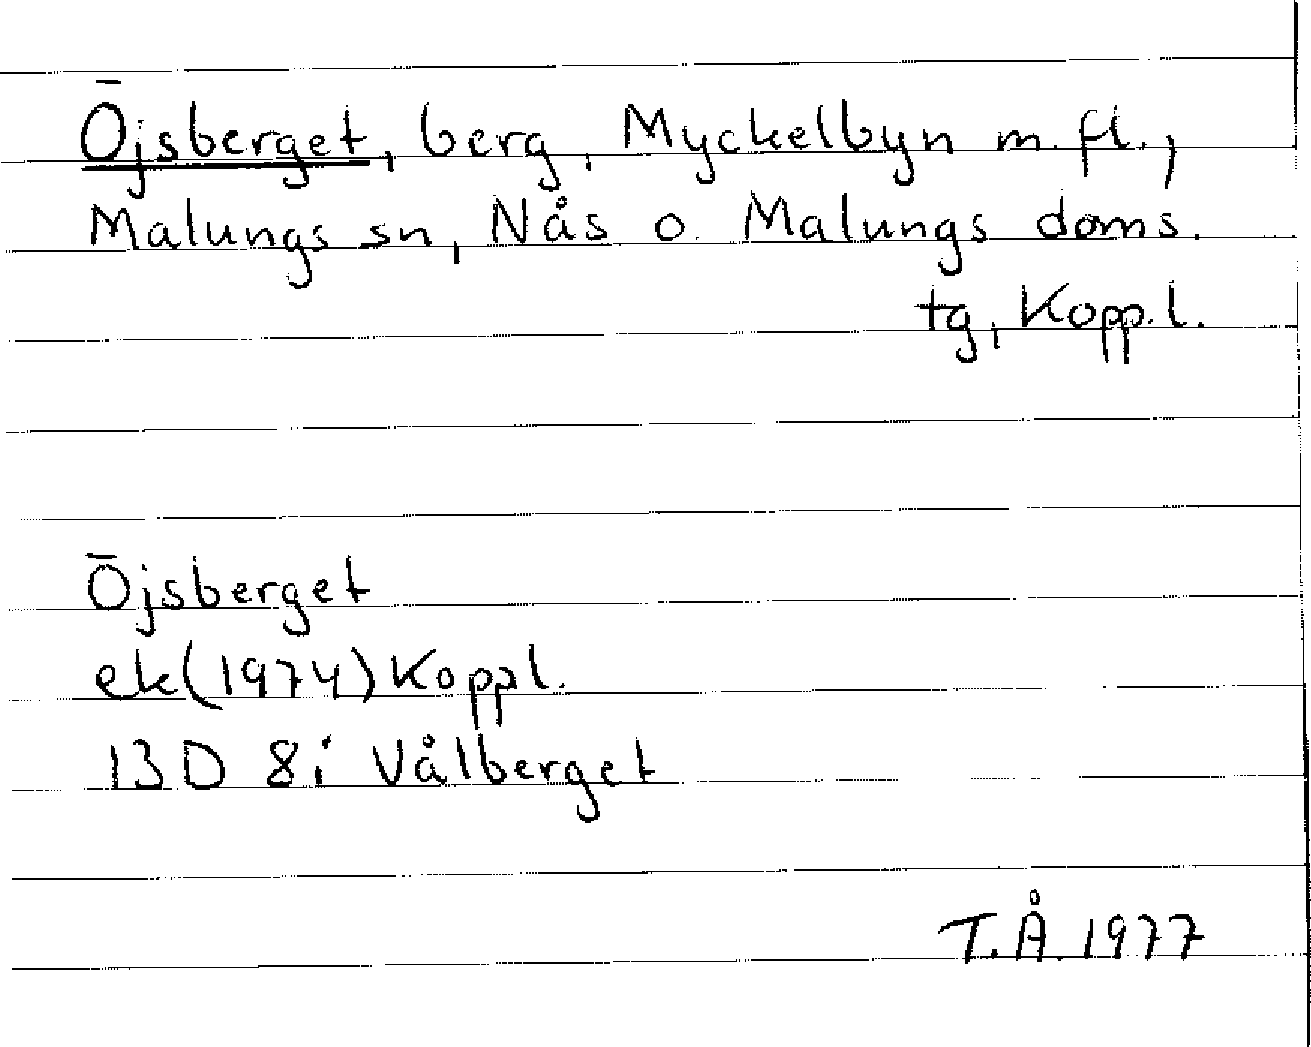 Öjsberget, berg, Myckelbyn m.fl.,
Malungs sn, Nås o. Malungs doms.
tg, Kopp.l.
Öjsberget
ek(1974) Koppl.
13D 8i Vålberget
T.Å. 1977